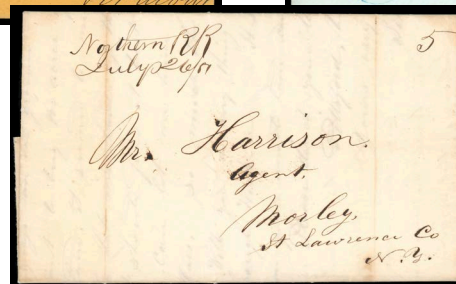 Northern RR
July 26/51
5
Mr. Harrison.
Agent.
Morley,
St Lawrence Co
N. Y.